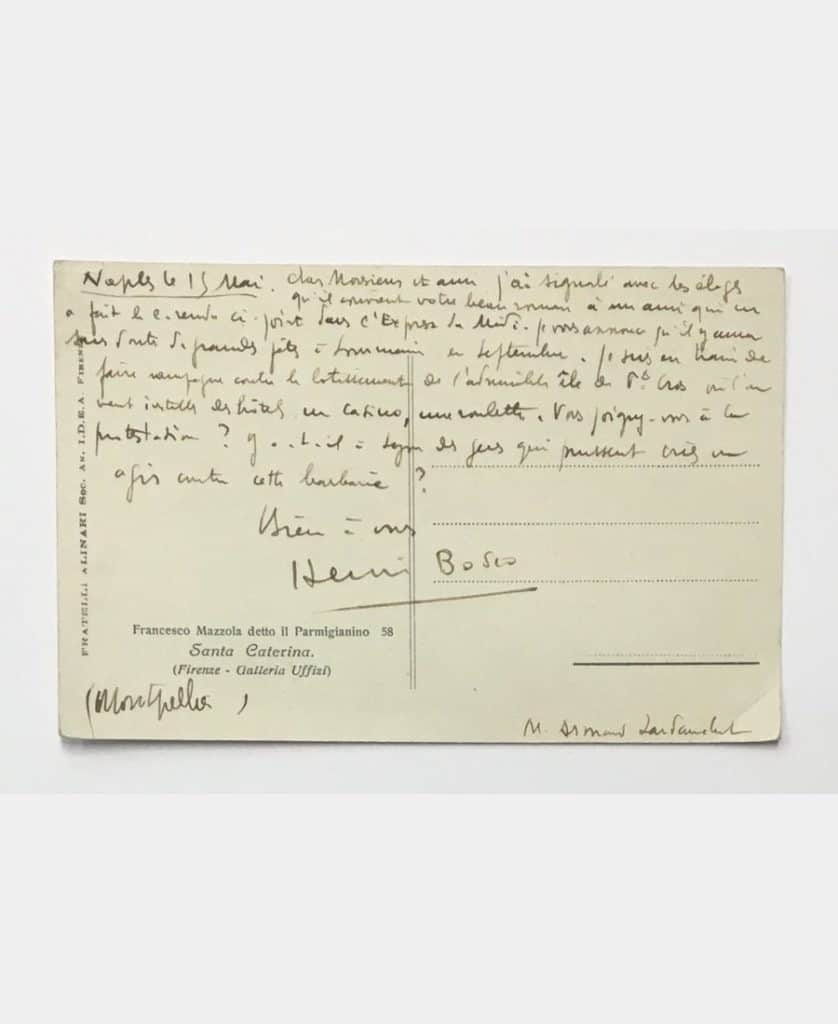 Naples le 15 Mai. Cher Monsieur et ami j'ai signalé avec les éloges
qu'il convient votre beau roman à un ami qui en
a fait le c. rendu ci-joint dans l'Express du Midi. Je vous annonce qu'il y aura
sans doute de grandes fêtes à Lourmarin en Septembre. Je suis en train de
faire campagne contre le lotissement de l'admirable île de Pt Cros où l'on
veut installer des hôtels, un casino, une roulette. Vous joignez-vous à la
protestation ? Y a-t-il à Lyon des gens qui puissent crier ou
agir contre cette barbarie ?
Bien à vous
Henri Bosco
FRATELLI ALINARI Soc. AN. I.D.E.A. FIRENZE
Francesco Mazzola detto il Parmigianino 58
Santa Caterina.
(Firenze - Galleria Uffizi)
(Montpellier)
M. Armand